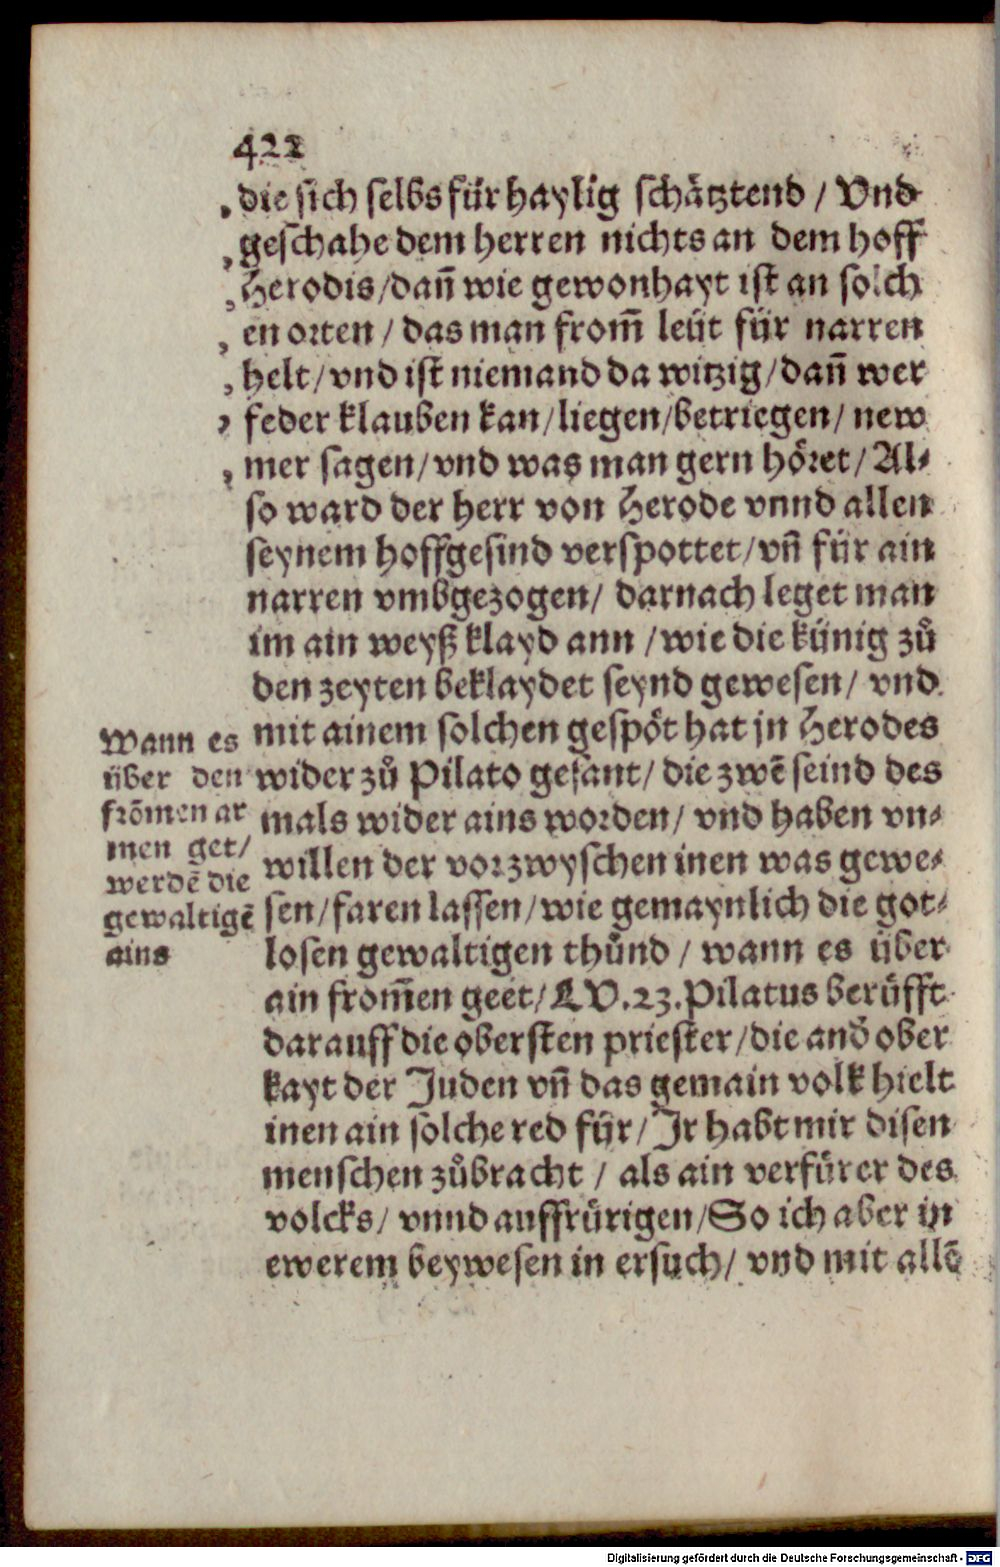 422
, die sich selbs für haylig schätztend / Vnd
, geschahe dem herren nichts an dem hoff
, Herodis/dañ wie gewonhayt ist an solch
, en orten / das man from̃ leüt für narren
, helt/vnd ist niemand da witzig/dañ wer
, feder klauben kan/liegen/betriegen/ new
, mer sagen/vnd was man gern höret/Al⸗
so ward der herr von Herode vnnd allen
seynem hoffgesind verspottet/vñ für ain
narren vmbgezogen/ darnach leget man
im ain weyß klayd ann /wie die künig zů
den zeyten beklaydet seynd gewesen/ vnd
mit ainem solchen gespöt hat jn Herodes
wider zů Pilato gesant/ die zwẽ seind des
mals wider ains worden/ vnd haben vn⸗
willen der vor zwyschen inen was gewe⸗
sen/faren lassen/wie gemaynlich die got⸗
losen gewaltigen thůnd / wann es über
ain from̃en geet/LV.23.Pilatus berüfft
darauff die obersten priester/die and̃ ober
kayt der Juden vñ das gemain volk hielt
inen ain solche red für/Jr habt mir disen
menschen zůbracht / als ain verfürer des
volcks/ vnnd auffrürigen/So ich aber in
ewerem beywesen in ersuch/ vnd mit allẽ
Wann es
über den
frõmen ar
men get/
werdẽ die
gewaltigẽ
ains
Digitalisierung gefördert durch die Deutsche Forschungsgemeinschaft - DFG